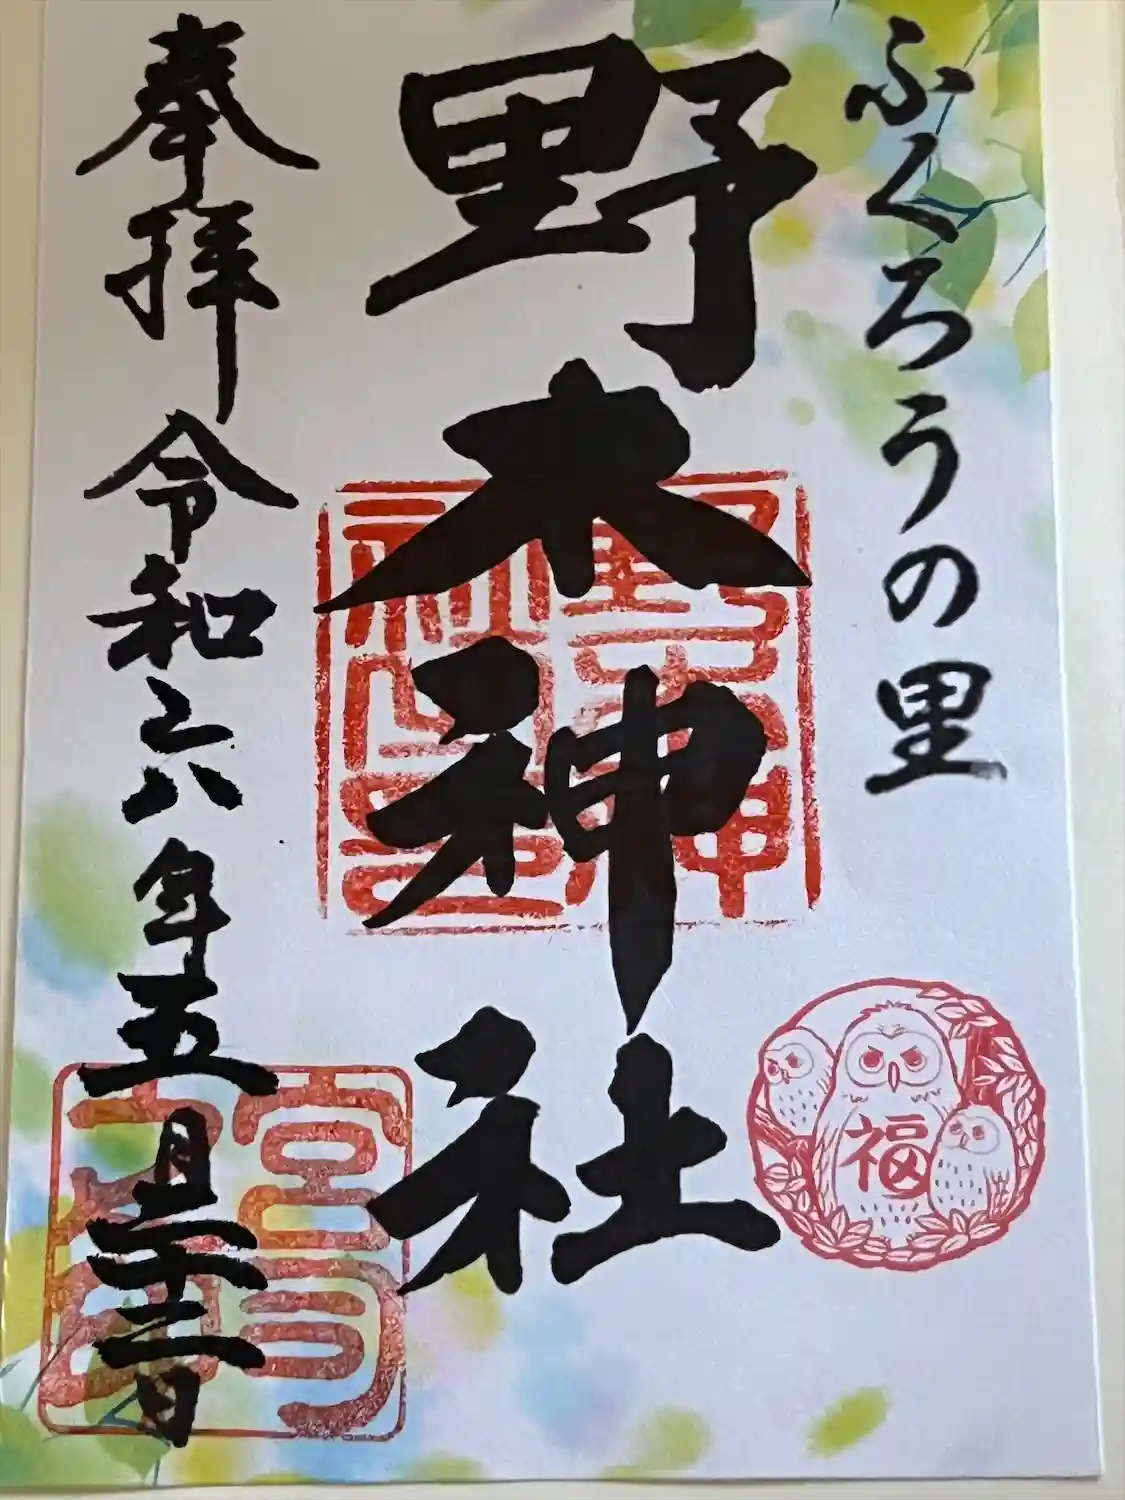 ふくろうの里
野木神社
奉拝
令和六年五月二十二日
野木神社之印
福
宮司